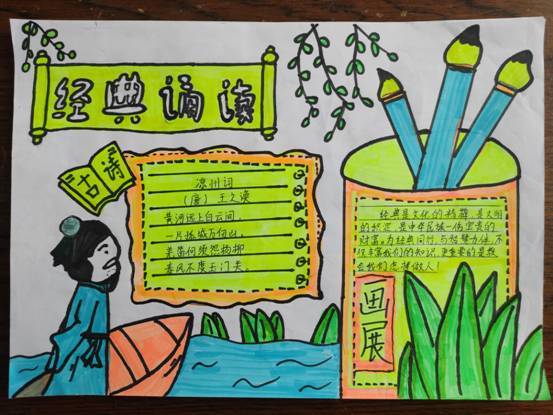 经典诵读
古诗
凉州词
(唐) 王之涣
黄河远上白云间,
一片孤城万仞山,
羌笛何须怨杨柳
春风不度玉门关。
经典是文化的精髓,是文明
的积淀,是中华民族一份宝贵的
财富,与经典同行,与哲贤为伍,不
仅丰富我们的知识,更重要的是教
会我们怎样做人!
画展